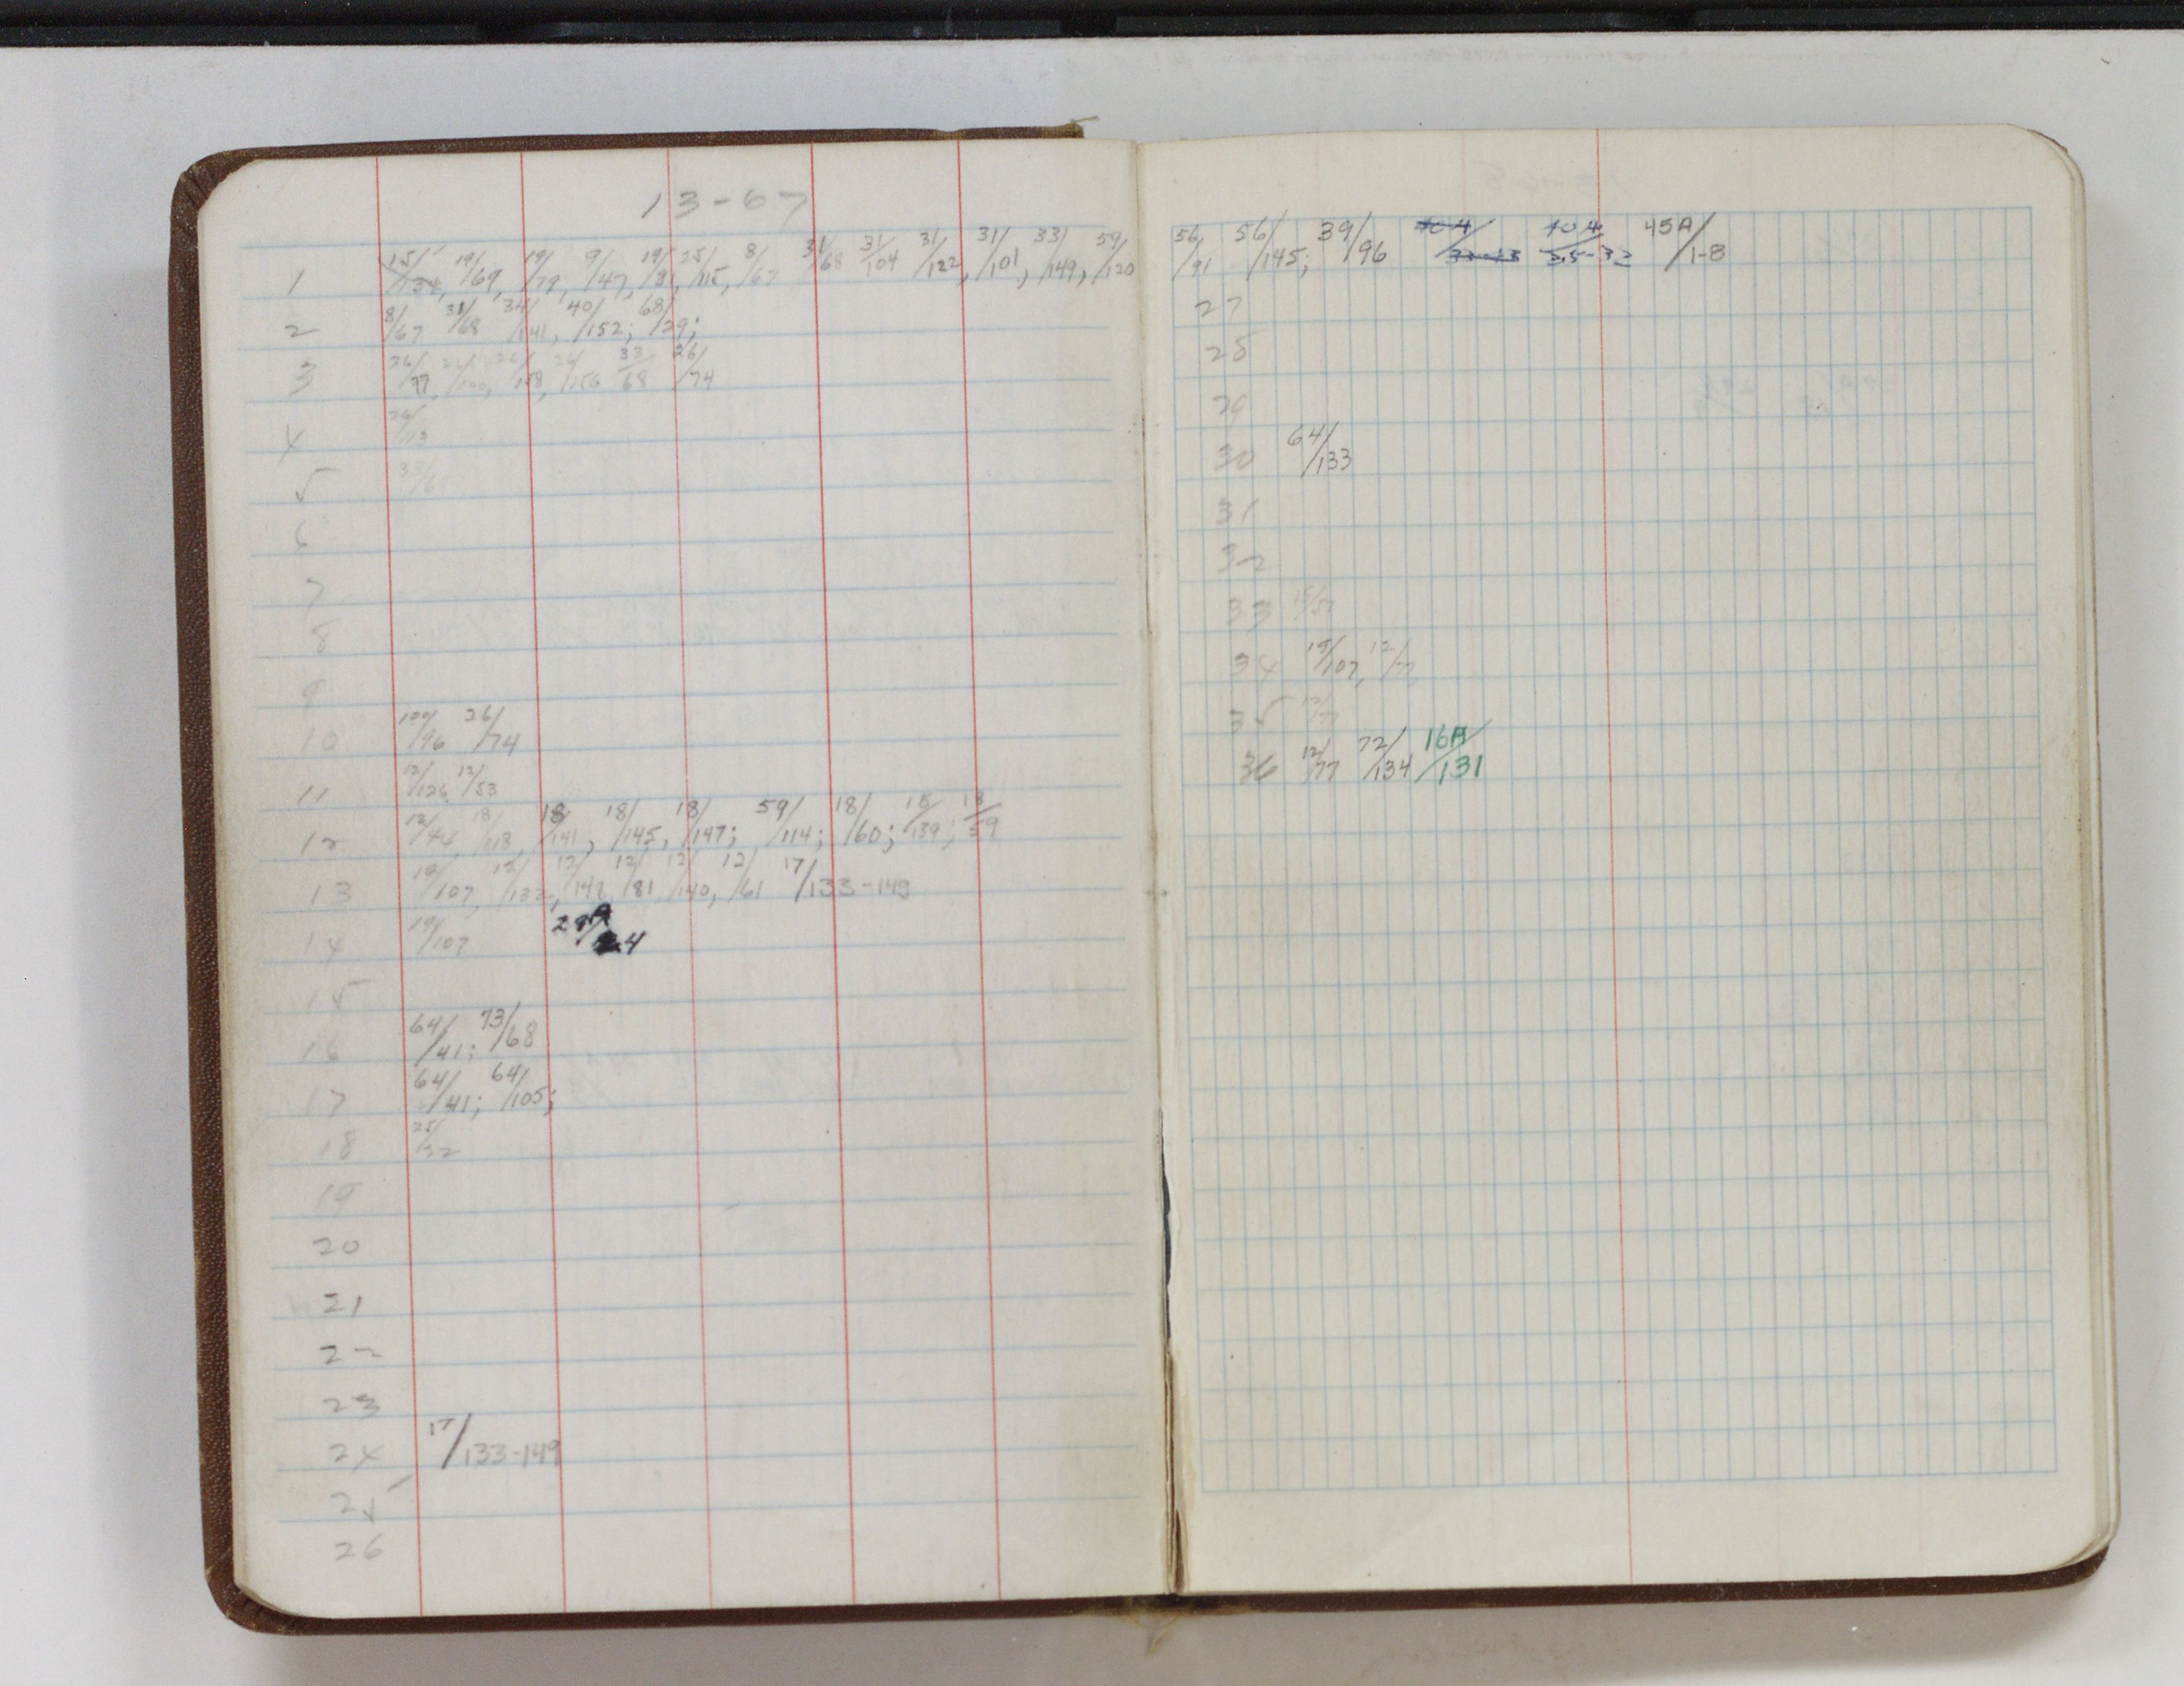 13-67
1 15/134, 19/69, 19/79, 9/47, 19/81, 25/115, 8/67 31/68 31/104 31/122, 31/101, 33/149, 59/120
2 8/67 31/68 34/141, 40/152; 68/29;
3 26/77, 26/158, 26/156 33/68 26/74
4 26/113
5 33/68
6
7
8
9
10 100/96 26/74
11 12/126 12/53
12 12/44 18/118, 18/141, 18/145, 18/147; 59/114; 18/60; 18/139; 18/59
13 19/107, 12/132, 12/142, 12/81, 12/140, 12/61 17/133-149
14 19/107 29A/24
15
16 64/41; 73/68
17 64/41; 64/105;
18 25/32
19
20
21
22
23
24 17/133-149
25
26
56/91 56/145; 39/96 45A/1-8
27
28
29
30 64/133
31
32
33 15/57
34 19/107, 12/77
35 12/77
36 12/77 72/134 16A/131